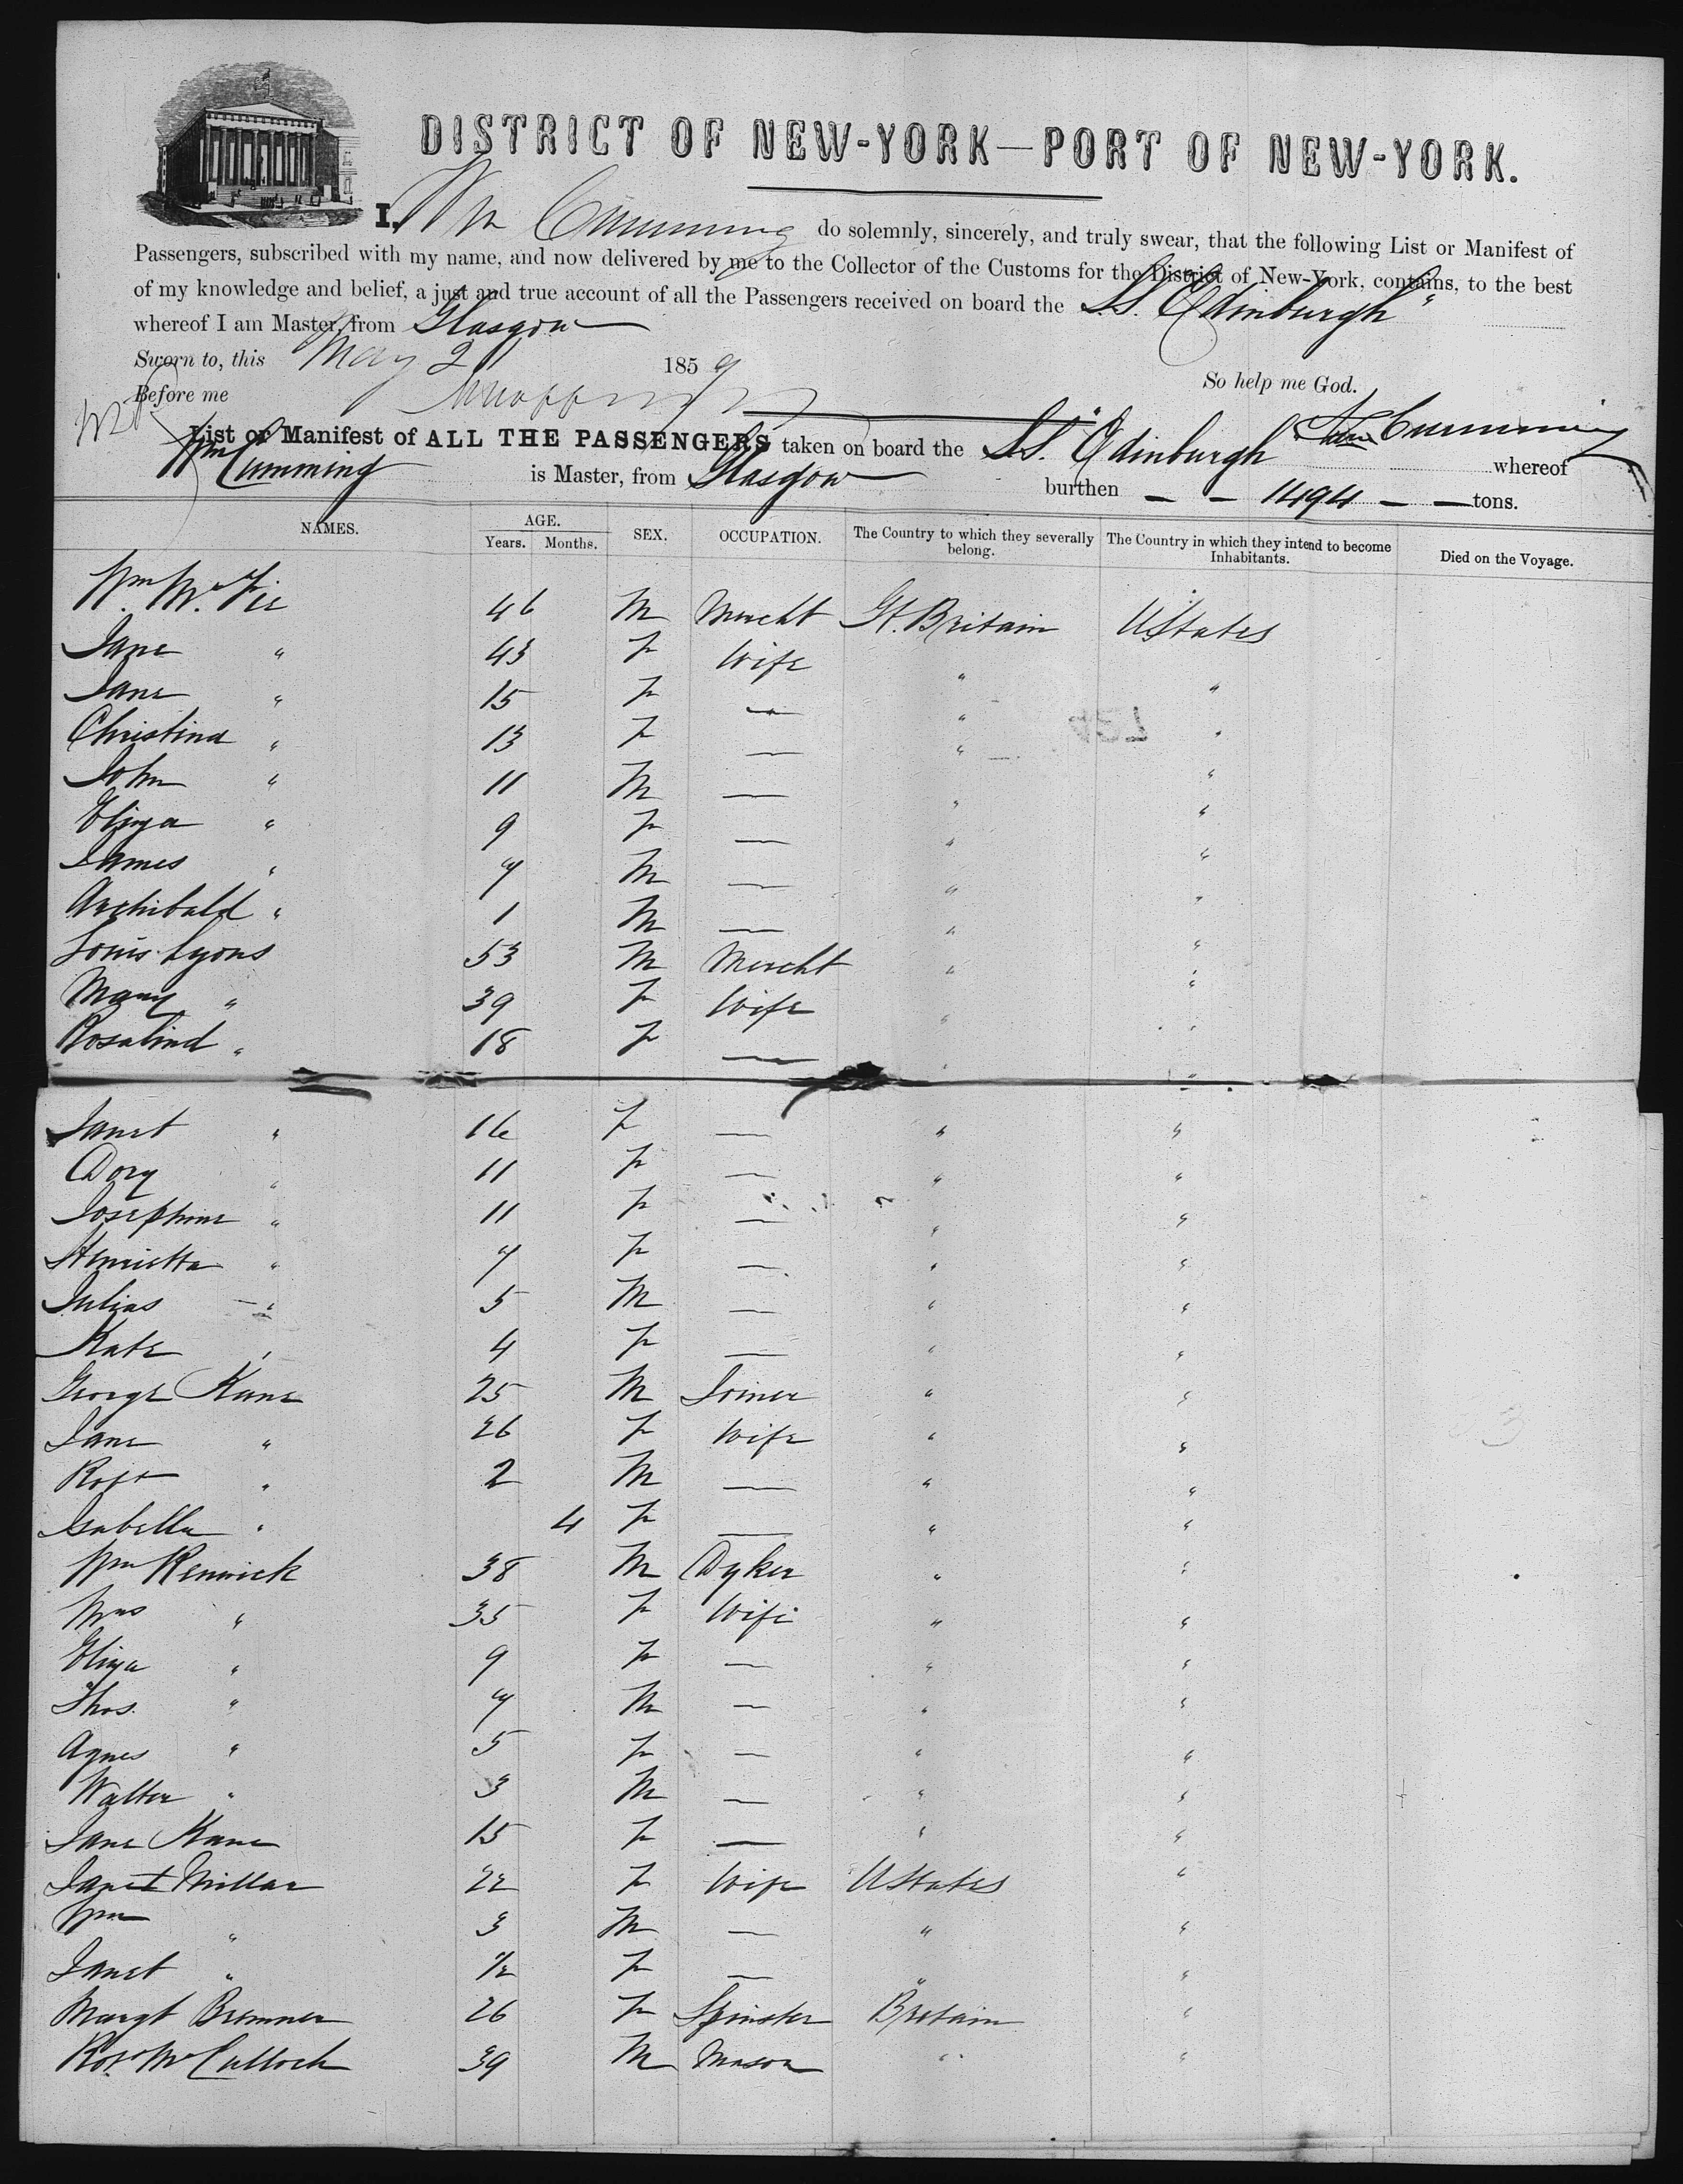 DISTRICT OF NEW-YORK—PORT OF NEW-YORK.
I, Wm Cumming do solemnly, sincerely, and truly swear, that the following List or Manifest of
Passengers, subscribed with my name, and now delivered by me to the Collector of the Customs for the District of New-York, contains, to the best
of my knowledge and belief, a just and true account of all the Passengers received on board the S.S. Edinburgh"
whereof I am Master, from Glasgow
Sworn to, this May 2 1859 So help me God.
Before me
Wm Cumming
List or Manifest of ALL THE PASSENGERS taken on board the S.S. Edinburgh whereof
Wm Cumming is Master, from Glasgow burthen — — 1494 — — tons.
NAMES. AGE. Years. Months. SEX. OCCUPATION. The Country to which they severally belong. The Country in which they intend to become Inhabitants. Died on the Voyage.
Wm McFie 46 M Mercht Gt. Britain UStates
Jane " 43 F Wife " "
Jane " 15 F — " "
Christina " 13 F — " "
John " 11 M — " "
Eliza " 9 F — " "
James " 7 M — " "
Archibald " 1 M — " "
Louis Lyons 53 M Mercht " "
Mary " 39 F Wife " "
Rosalind " 18 F — " "
Janet " 16 F — " "
Dory " 11 F — " "
Josephine " 11 F — " "
Henrietta " 7 F — " "
Julias " 5 M — " "
Kate " 4 F — " "
George Kane 25 M Joiner " "
Jane " 26 F Wife " "
Robt " 2 M — " "
Isabella " 4 F — " "
Wm Renwick 38 M Dyker " "
Mrs " 35 F Wife " "
Eliza " 9 F — " "
Thos. " 7 M — " "
Agnes " 5 F — " "
Walter " 3 M — " "
Jane Kane 15 F — " "
Janet Millar 22 F Wife UStates "
Wm " 3 M — " "
Janet " 1/2 F — " "
Margt Bremner 26 F Spinster Britain "
Robt McCulloch 39 M Mason " "